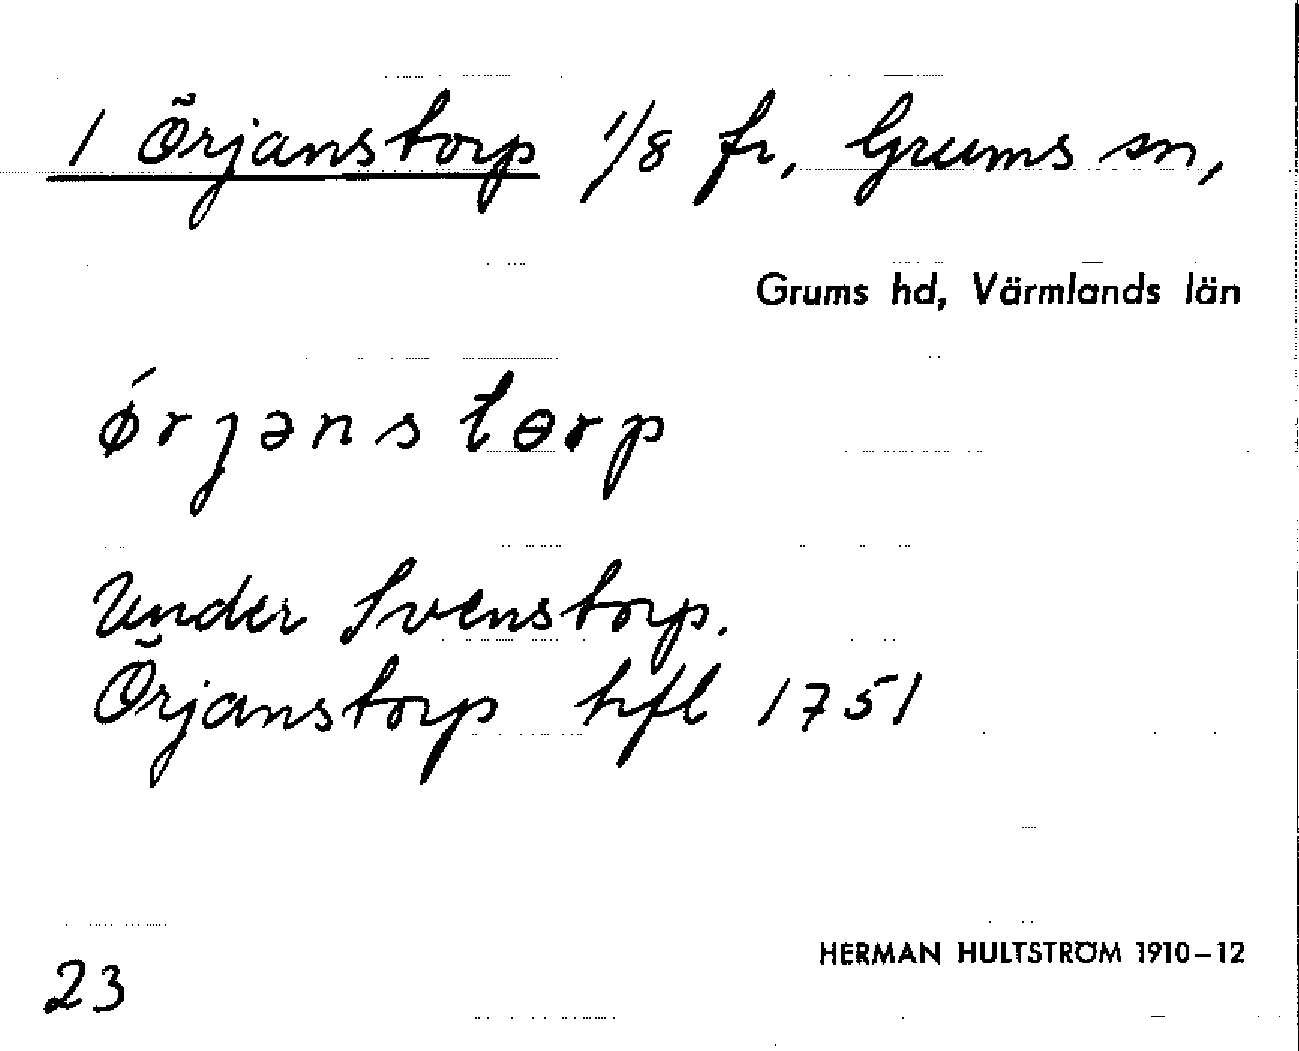 1 Örjanstorp 1/8 fr, Grums sn,
Grums hd, Värmlands län
ǿrjanstɵrp
Under Svenstorp.
Örjanstorp hfl 1751
23
HERMAN HULTSTRÖM 1910–12